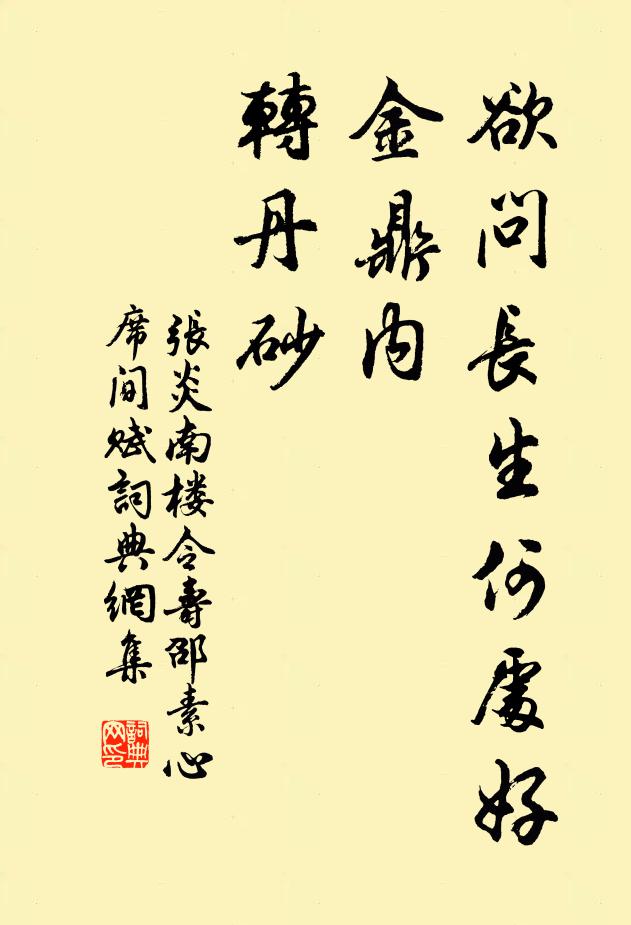 欲問長生何處好
金鼎內
轉丹砂
張炎南楼令壽邵素心
席间賦詞典網集
詞典
网印